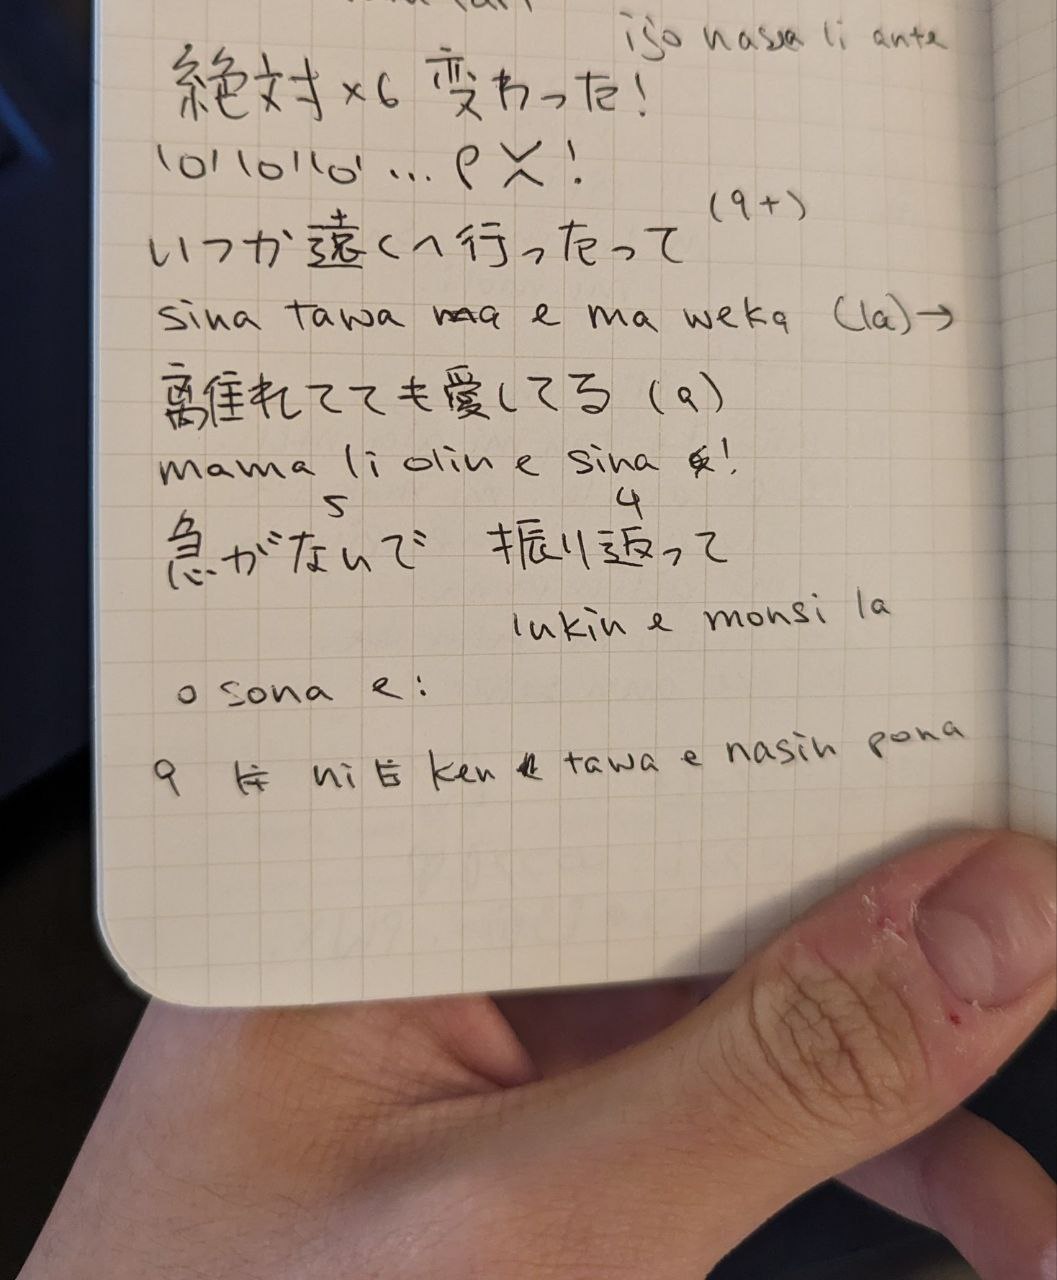 ijo nasa li ante
絶対×6 変わった!
いつか遠くへ行ったって (9+)
sina tawa e ma weka (la)→
離れてても愛してる (a)
mama li olin e sina !
5 4
急がないで 振り返って
lukin e monsi la
o sona e:
ni ken tawa e nasin pona